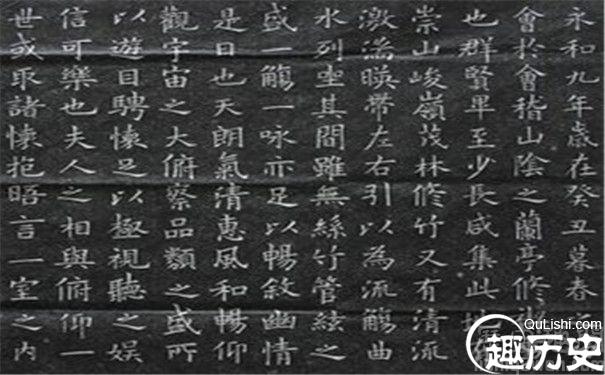 永和九年歲在癸丑暮春
會於會稽山陰之蘭亭修
也群賢畢至少長咸集此
崇山峻嶺茂林修竹又有清流
激湍暎帶左右引以為流觴曲
水列坐其間雖無絲竹管絃之
盛一觴一咏亦足以暢敘幽情
是日也天朗氣清惠風和暢仰
觀宇宙之大俯察品類之盛所
以遊目騁懷足以極視聽之娛
信可樂也夫人之相與俯仰一
世或取諸懷抱晤言一室之內
QuLishi.com
趣历史